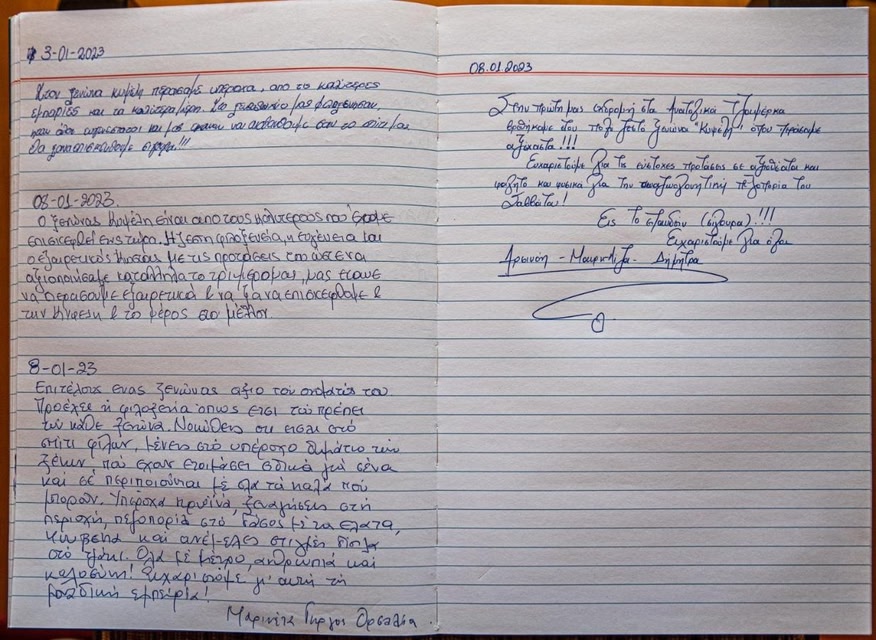 3-01-2023
Στον ξενώνα Κυψέλη περάσαμε υπέροχα, απο τις καλύτερες
εμπειρίες και τα καλύτερα μέρη.
που όλοι
θα ξαναεπισκεφθούμε σίγουρα!!!
08-01-2023.
Ο ξενώνας Κυψέλη είναι απο τους καλύτερους που έχουμε
επισκεφθεί εως τώρα. Η ζεστη φιλοξενεία, η ευγένεια του
ο εξαιρετικός Κώστας με τις προτάσεις του ώστε να
αξιοποιήσαμε καταλληλα το τριήμερο μας, μας έκανε
να περάσουμε εξαιρετικά & να ξαναεπισκεφθούμε &
την Κυψέλη & το μέρος στο μέλλον.
8-01-23
Επιτέλους ενας ξενώνας αξιο του ονοματός του
Προέχει η φιλοξενία όπως ετσι του πρέπει
του κάθε ξενώνα. Νοιώθεις οτι εισαι στό
σπίτι φίλων, μένεις στό υπέροχο δωμάτιο των
ξένων, που εχουν ετοιμάσει ειδικά για σένα
και σέ περιποιούνται μέ ολα τα καλά που
μπορούν. Υπέροχα πρωϊνά, ξεναγήσεις στή
περιοχή, πεζοπορία στό δάσος μέ τα ελατα,
και ανέμελες στιγμές διπλα
στό τζάκι. Ολα μέ μέτρο, ανθρωπιά και
καλοσύνη! Ευχαριστούμε γι' αυτή τή
μοναδική εμπειρία!
Μαρινέτα Γιώργος Θρσαλία
08.01.2023
Στην πρώτη μας εκδρομή στα Ανατολικά Τζουμέρκα
βρεθήκαμε στον πολύ ζεστό ξενώνα "Κυψέλη" όπου περάσαμε
αξέχαστα!!!
Ευχαριστούμε για τις εύστοχες προτάσεις σε αξιοθέατα και
φαγητό και φυσικά για την αναζωογονητική πεζοπορία του
Σαββάτου!
Εις το επανιδείν (σίγουρα)!!!
Ευχαριστούμε για όλα
Αρσινόη - Μαυρουδίζα - Δήμητρα